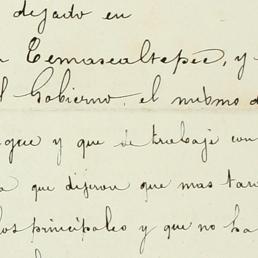 dejado en
Temascaltepec, y
Gobierno, el mismo d
que y que de trabaje con
a que dijeron que mas tar
los principales y que no ha